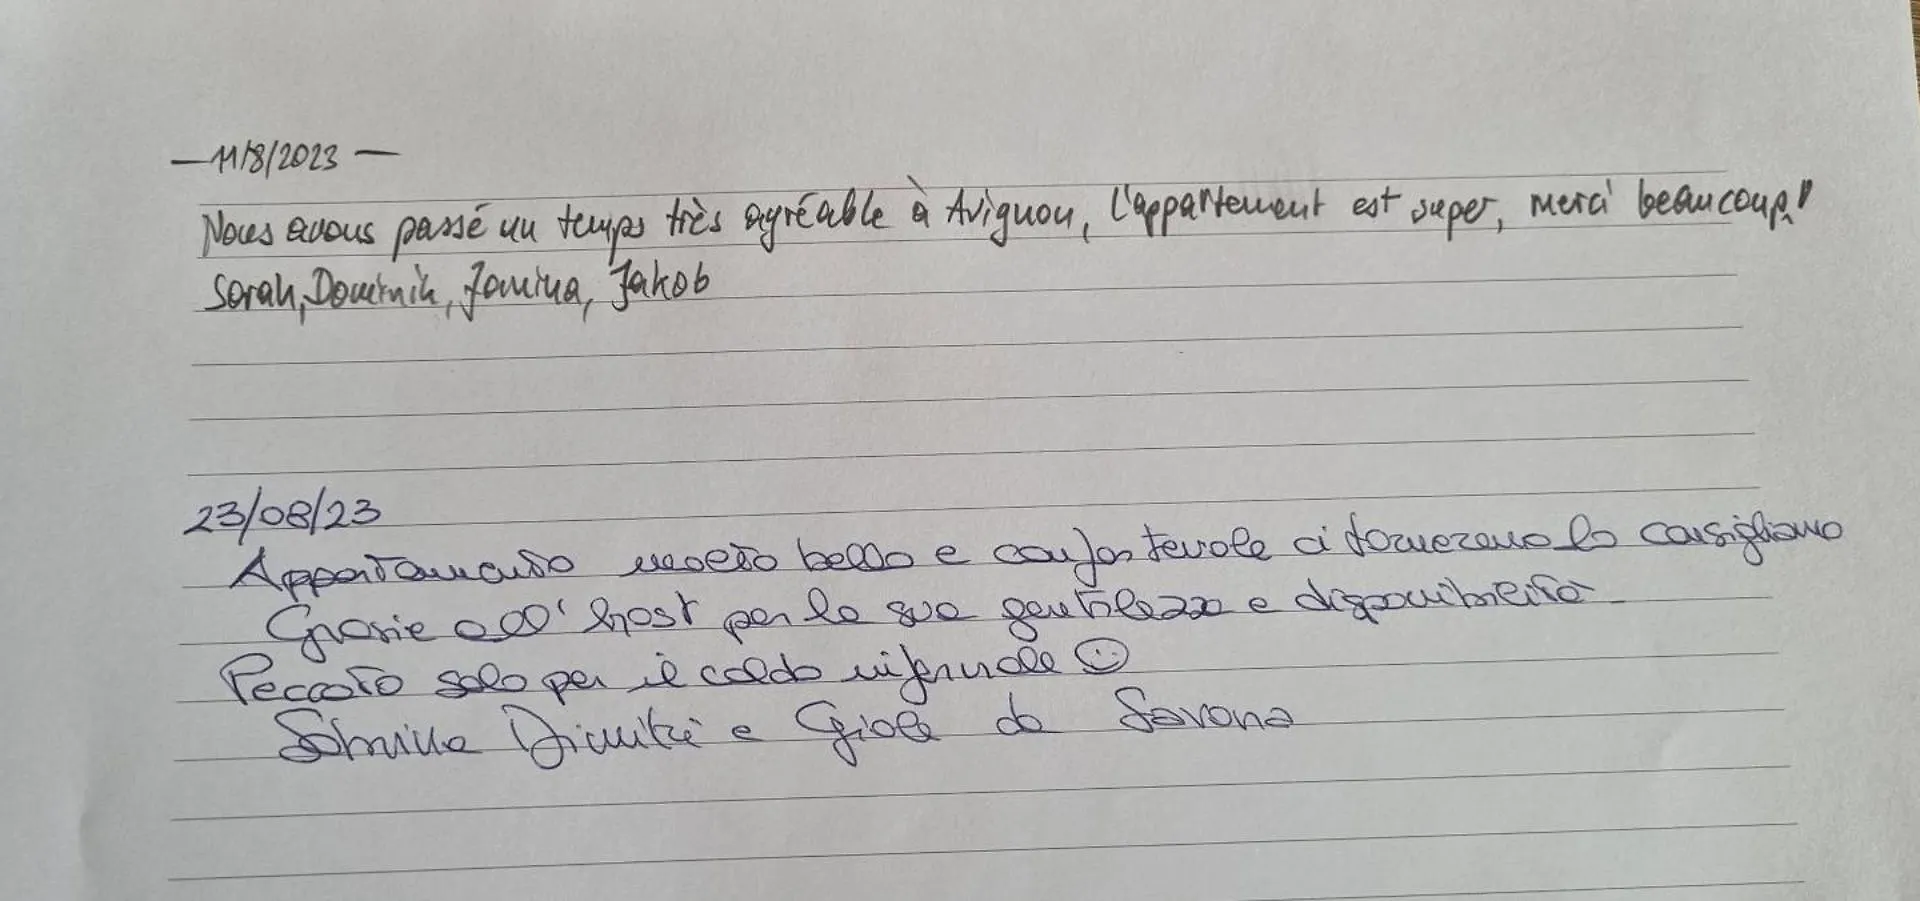 —11/8/2023—
Nous avons passé un temps très agréable à Avignon, l'appartement est super, merci beaucoup!
Sarah, Dominik, Jamina, Jakob
23/08/23
Appartamento molto bello e confortevole ci torneremo lo consigliamo
Grazie all'host per la sua gentilezza e disponibilità
Peccato solo per il caldo infernale ☺
Dimitri e Giole da Savona